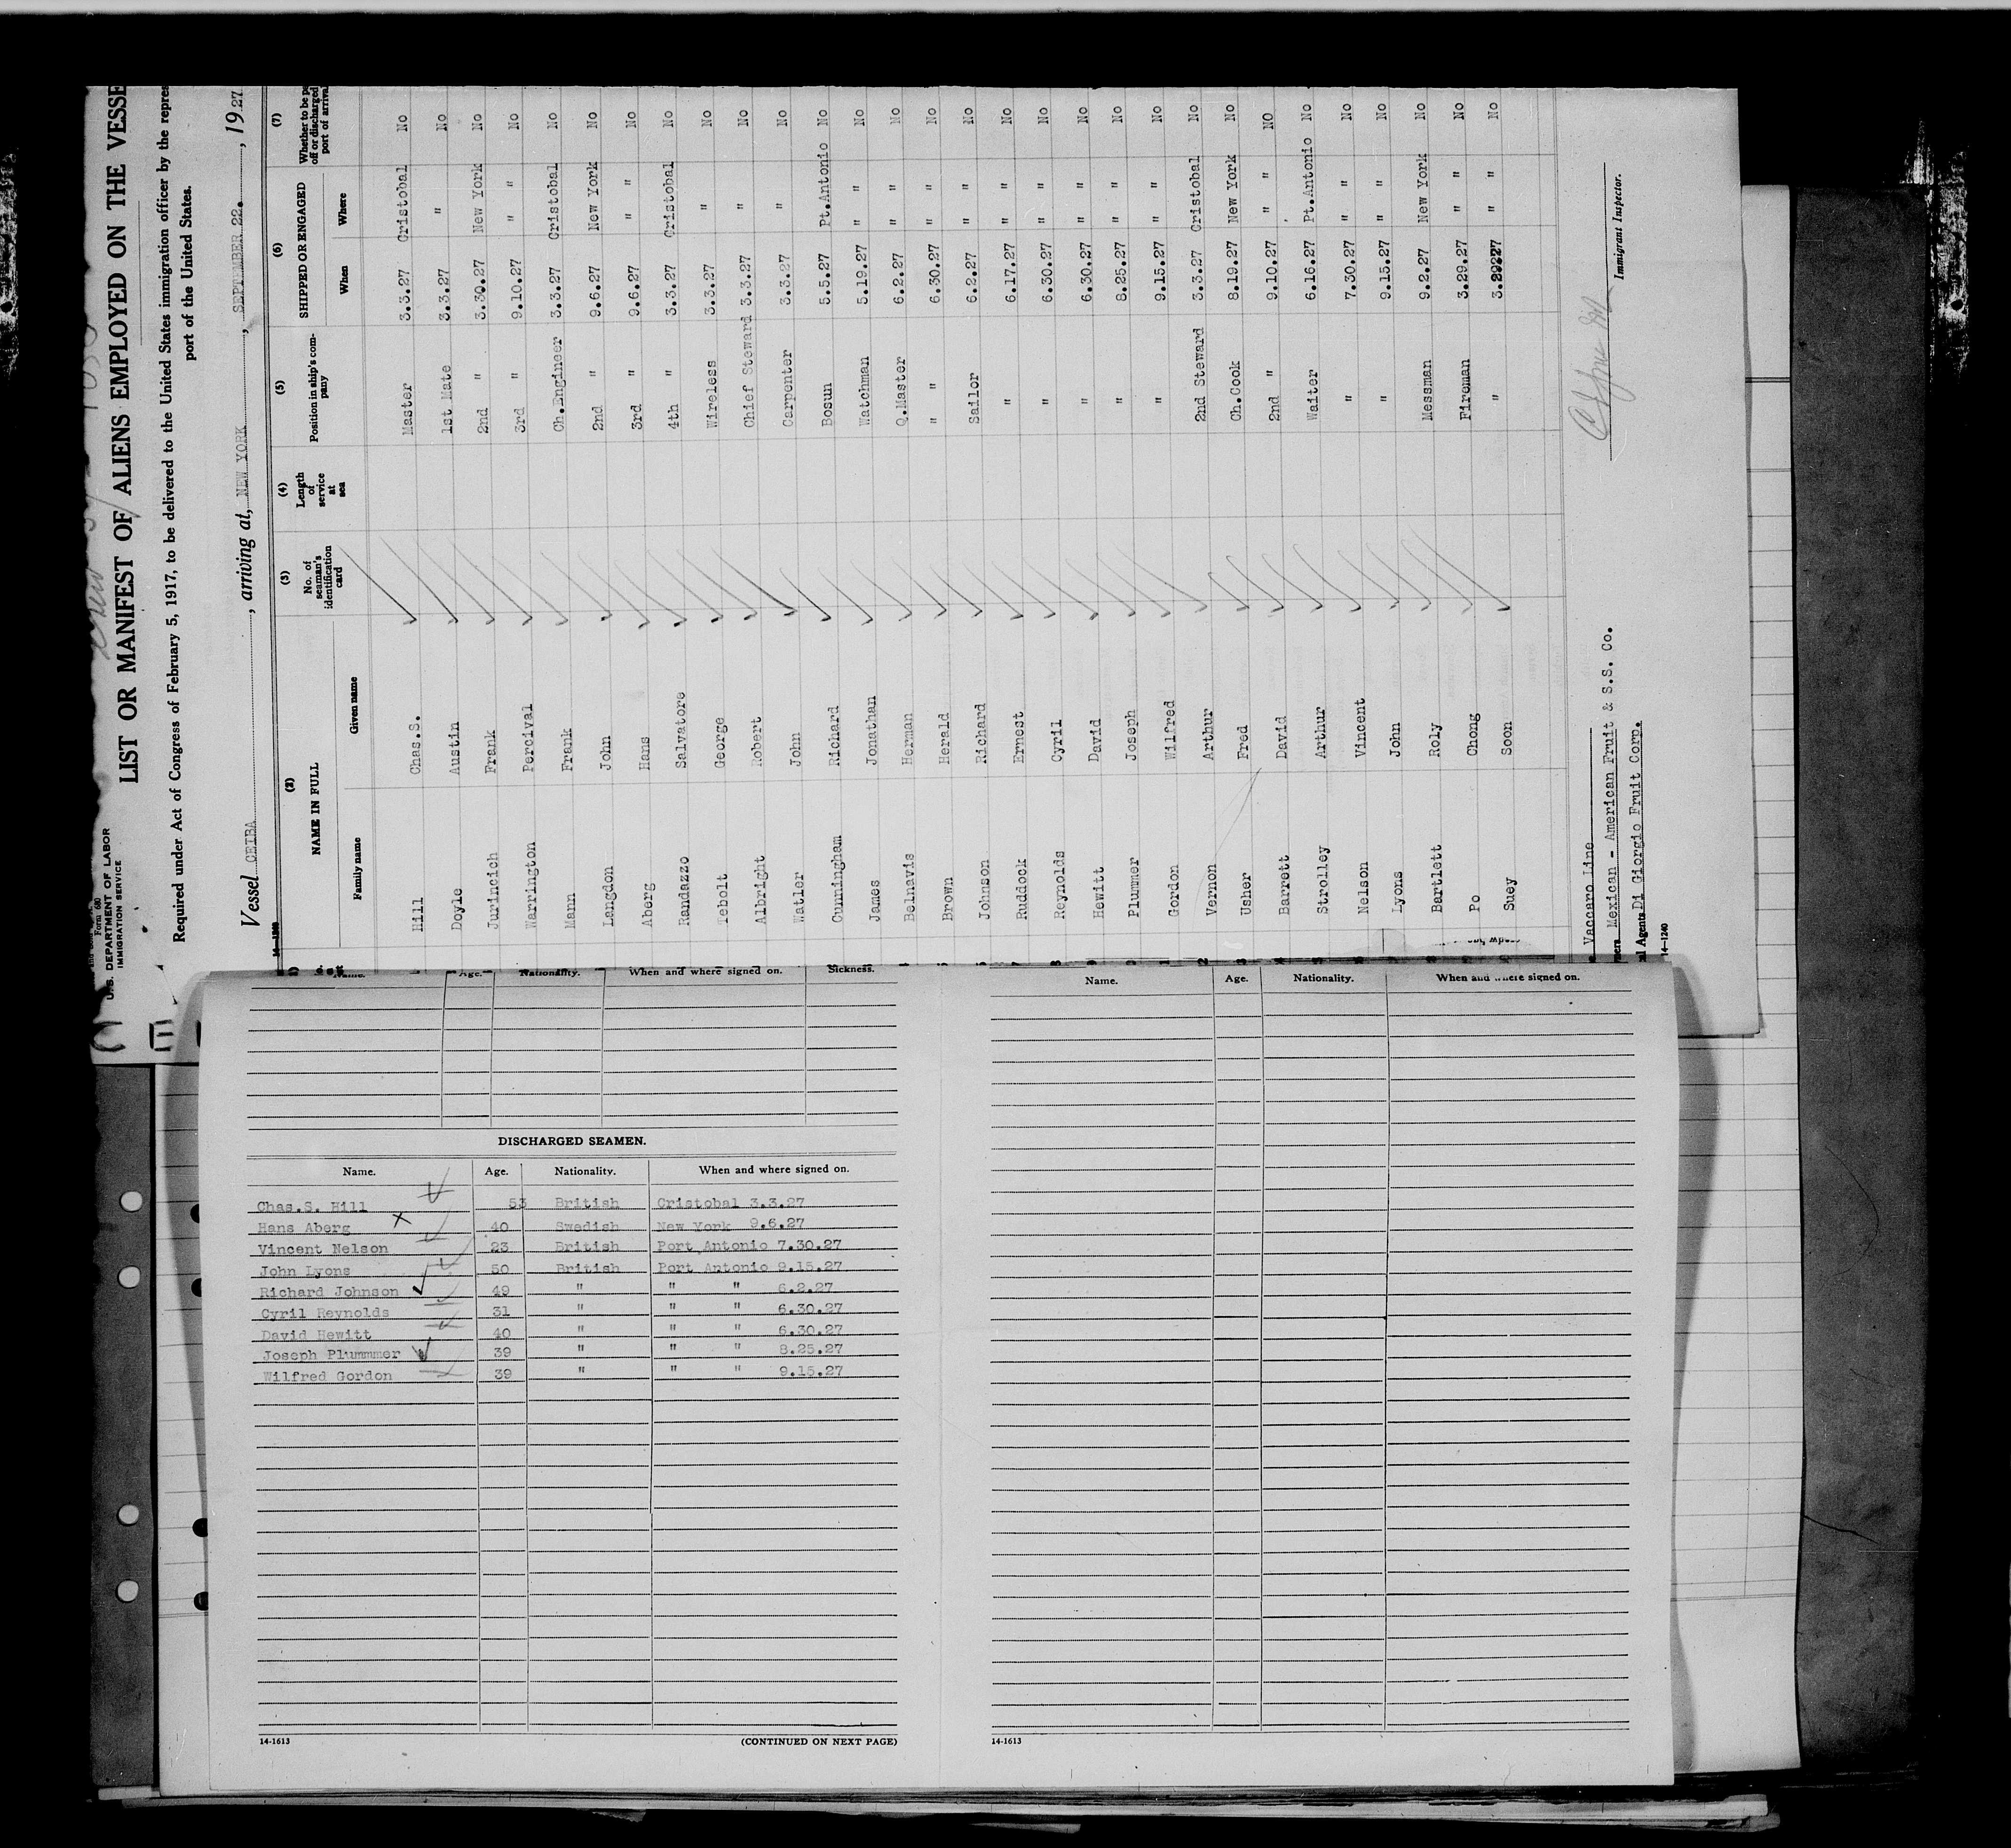 Form 680
U.S. DEPARTMENT OF LABOR
IMMIGRATION SERVICE
LIST OR MANIFEST OF ALIENS EMPLOYED ON THE VESSE
Required under Act of Congress of February 5, 1917, to be delivered to the United States immigration officer by the repres
port of the United States.
Vessel CEIBA, arriving at, NEW YORK, SEPTEMBER 22., 1927
(2) (3) (4) (5) (6) (7)
NAME IN FULL No. of seaman's identification card Length of service at sea Position in ship's company SHIPPED OR ENGAGED Whether to be pa off or discharged port of arrival
Family name Given name When Where
Hill Chas.S. Master 3.3.27 Cristobal No
Doyle Austin 1st Mate 3.3.27 " No
Jurincich Frank 2nd " 3.30.27 New York No
Warrington Percival 3rd " 9.10.27 " No
Mann Frank Ch.Engineer 3.3.27 Cristobal No
Langdon John 2nd " 9.6.27 New York No
Aberg Hans 3rd " 9.6.27 " No
Randazzo Salvatore 4th " 3.3.27 Cristobal No
Tebolt George Wireless 3.3.27 " No
Albright Robert Chief Steward 3.3.27 " No
Watler John Carpenter 3.3.27 " No
Cunningham Richard Bosun 5.5.27 Pt.Antonio No
James Jonathan Watchman 5.19.27 " " No
Belnavis Herman Q.Master 6.2.27 " " No
Brown Herald " " 6.30.27 " " No
Johnson Richard Sailor 6.2.27 " " No
Ruddock Ernest " 6.17.27 " " No
Reynolds Cyril " 6.30.27 " " No
Hewitt David " 6.30.27 " " No
Plummer Joseph " 8.25.27 " " No
Gordon Wilfred " 9.15.27 " " No
Vernon Arthur 2nd Steward 3.3.27 Cristobal No
Usher Fred Ch.Cook 8.19.27 New York No
Barrett David 2nd " 9.10.27 " " NO
Strolley Arthur Waiter 6.16.27 Pt.Antonio No
Nelson Vincent " 7.30.27 " " No
Lyons John " 9.15.27 " " No
Bartlett Roly Messman 9.2.27 New York No
Po Chong Fireman 3.29.27 " " No
Suey Soon " " " No
Vaccaro Line
Mexican - American Fruit & S.S. Co.
al Agents Di Giorgio Fruit Corp.
14-1240
Immigrant Inspector.
Name. Age. Nationality. When and where signed on. Sickness.
DISCHARGED SEAMEN.
Name. Age. Nationality. When and where signed on.
Chas.S. Hill 53 British Cristobal 3.3.27
Hans Aberg 40 Swedish New York 9.6.27
Vincent Nelson 23 British Port Antonio 7.30.27
John Lyons 50 British Port Antonio 9.15.27
Richard Johnson 49 " " " 6.2.27
Cyril Reynolds 31 " " " 6.30.27
David Hewitt 40 " " " 6.30.27
Joseph Plummmer 39 " " " 8.25.27
Wilfred Gordon 39 " " " 9.15.27
14-1613 (CONTINUED ON NEXT PAGE)
Name. Age. Nationality. When and where signed on.
14-1613